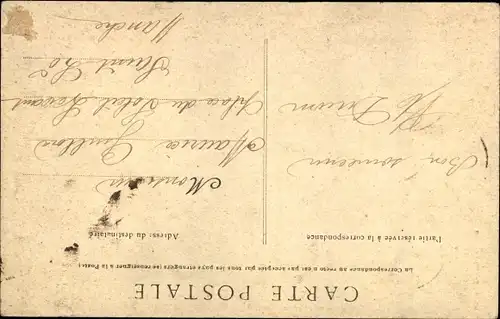 CARTE POSTALE
La Correspondance au recto n'est pas acceptée par tous les pays étrangers (se renseigner à la Poste)
Partie réservée à la correspondance
Adresse du destinataire
Bon souvenir
Monsieur
Maurice
Place du Soleil Levant
Saint Lô
Manche